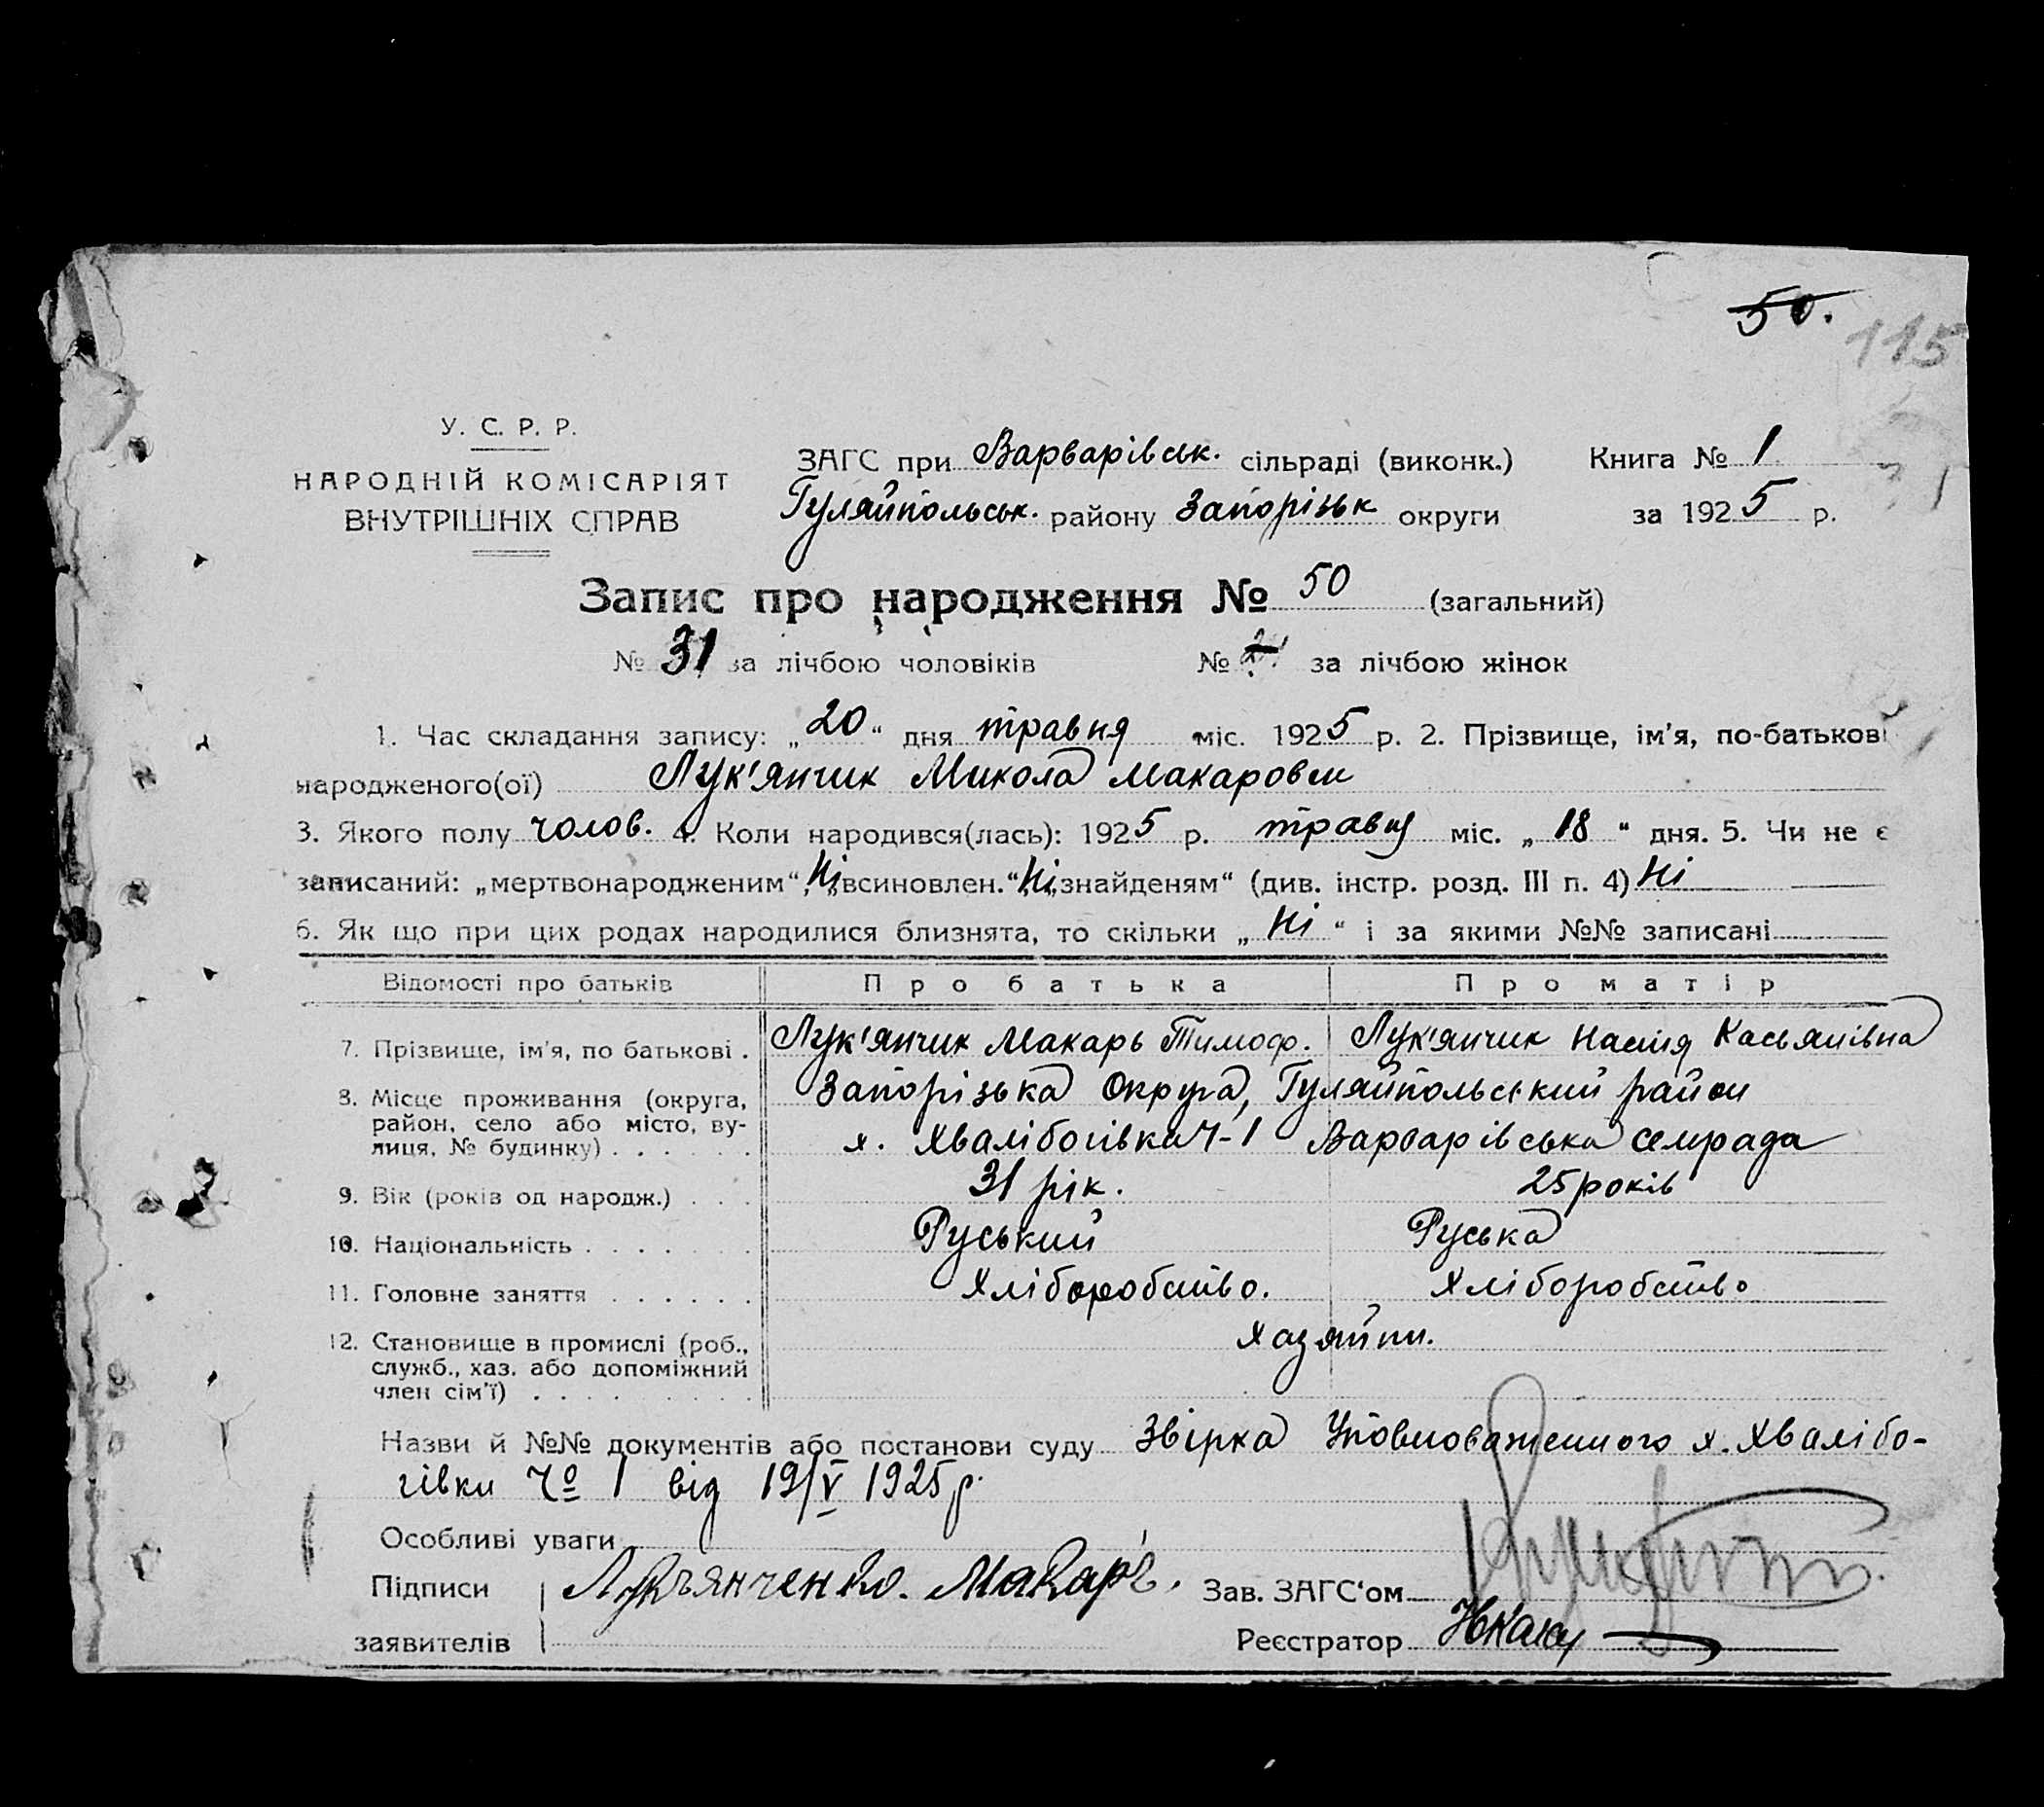 50.
115
У. С. Р. Р.
НАРОДНІЙ КОМІСАРІЯТ
ВНУТРІШНІХ СПРАВ
ЗАГС при Варварівськ. сільраді (виконк.) Книга № 1
Гуляйпольськ. району Запорізьк округи за 1925 р.
Запис про народження № 50 (загальний)
№ 31 за лічбою чоловіків № за лічбою жінок
1. Час складання запису: „20“ дня травня міс. 1925 р. 2. Прізвище, ім'я, по-батькові
народженого(ої) Лук'янчик Микола Макарович
3. Якого полу чолов. 4. Коли народився(лась): 1925 р. травня міс. „18“ дня. 5. Чи не є
записаний: „мертвонародженим“, Ні „всиновлен.“ Ні „знайденям“ (див. інстр. розд. III п. 4) Ні
6. Як що при цих родах народилися близнята, то скільки „Ні“ і за якими №№ записані
Відомості про батьків Про батька Про матір
7. Прізвище, ім'я, по батькові . Лук'янчик Макарь Тимоф. Лук'янчик Настя Касьянівна
8. Місце проживання (округа, Запорізька Округа, Гуляйпольський район
район, село або місто, ву-
лиця, № будинку) . . . . . . х. Хвалібогівка Ч-1 Варварівська сельрада
9. Вік (років од народж.) . . . 31 рік. 25 років
10. Національність . . . . . . . Руський Руська
11. Головне заняття . . . . . . Хліборобство. Хліборобство
12. Становище в промислі (роб., Хазяїни.
служб., хаз. або допоміжний
член сім'ї) . . . . . . . .
Назви й №№ документів або постанови суду Звірка Уповноваженного х. Хвалібо-
гівки Чо 1 від 19/V 1925 р.
Особливі уваги
Підписи Лукъянченко. Макаръ. Зав. ЗАГС'ом
заявителів Реєстратор